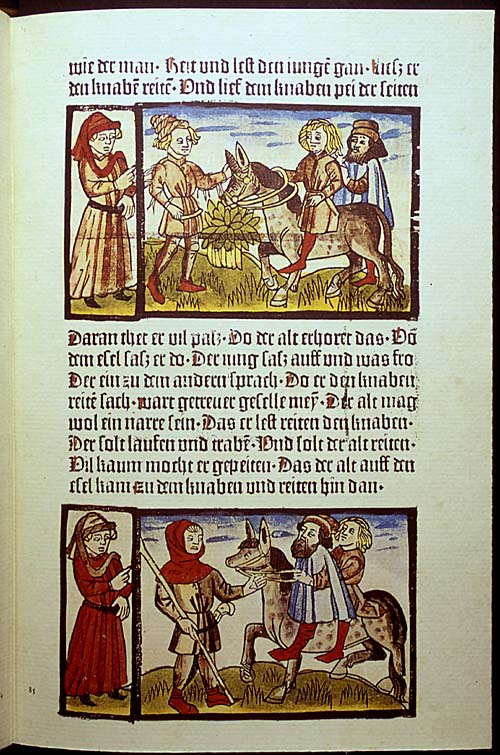 wie der man· Reit vnd lest den iungē gan· Liesz er
den knabē reitē· Vnd lief dem knaben pei der seiten
Daran thet er vil pasz· Do der alt erhoret das· Vō
dem esel sasz er do· Der iung sasz auff vnd was fro
Der ein zu dem andern sprach· Do er den knaben
reitē sach· wart getreuer geselle meȳ· Der alt mag
wol ein narre sein· Das er lest reiten den knaben·
Der solt laufen vnd trabē· Vnd solt der alt reiten·
Vil kaum mocht er gepeiten· Das der alt auff den
esel kam Zu dem knaben vnd reiten hin dan·
85